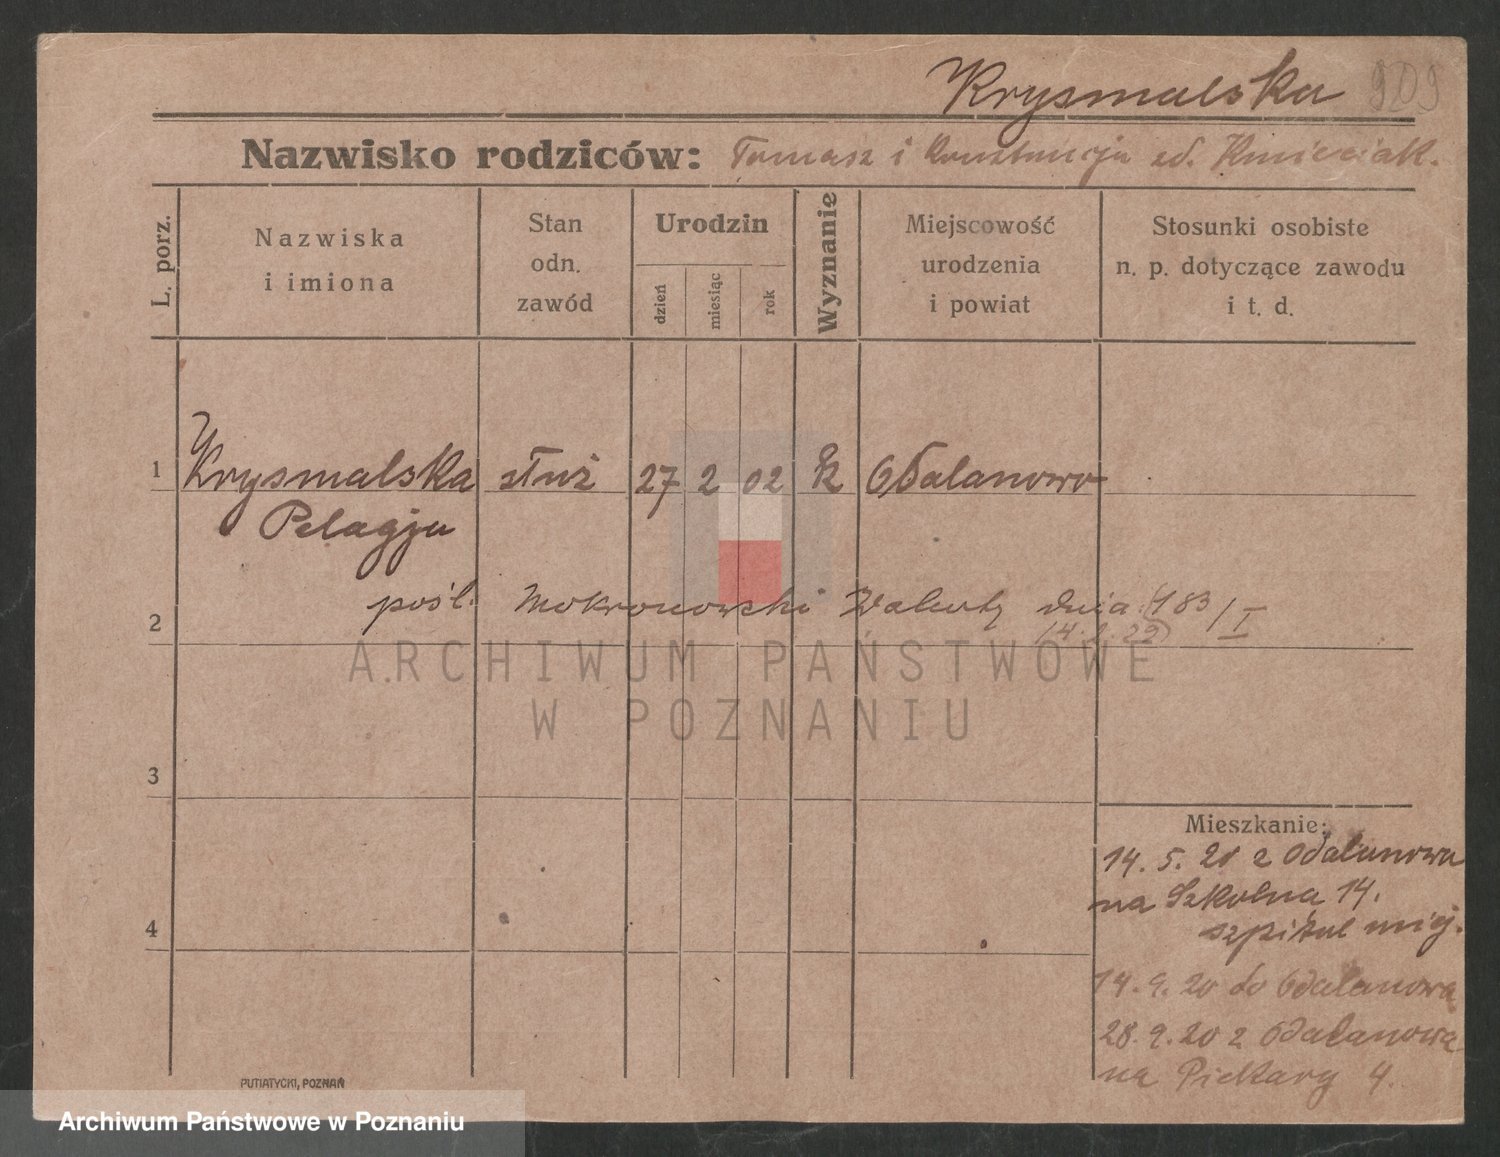 Krysmalska 909
Nazwisko rodziców: Tomasz i Konstancja zd. Kmieciak.
L. porz.
Nazwiska
i imiona
Stan
odn.
zawód
Urodzin
dzień
miesiąc
rok
Wyznanie
Miejscowość
urodzenia
i powiat
Stosunki osobiste
n. p. dotyczące zawodu
i t. d.
1 Krysmalska służ 27 2 02 k Odalanowo
Pelagja
2 pośl. Mokronowski Walenty dnia
14.2.22 183/I
ARCHIWUM PAŃSTWOWE
W POZNANIU
3
4
Mieszkanie:
14. 5. 20 z Odalanowa
na Szkolna 14.
szpital miej.
14. 9. 20 do Odalanowa
28. 9. 20 z Odalanowa
na Piekary 4.
PUTIATYCKI, POZNAŃ
Archiwum Państwowe w Poznaniu